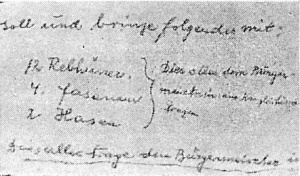 soll und bringe folgendes mit,
12 Rebhüner,
4. Fasanen
2 Hasen
Dies alles dem Bürger-
tragen
Dies alles trage dem Bürgermeister